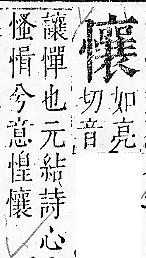 懹
如亮
切音
讓憚也元結詩心
慅悁兮意惶懹